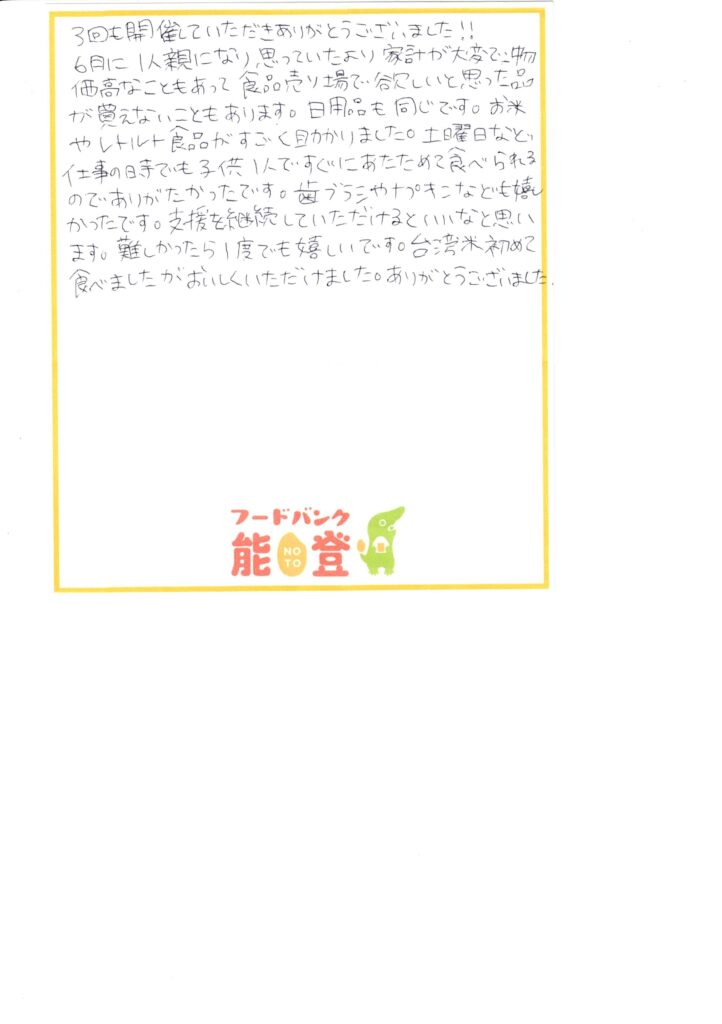 3回も開催していただきありがとうございました!!
6月に1人親になり思っていたより家計が大変で物
価高なこともあって食品売り場で欲しいと思った品
が買えないこともあります。日用品も同じです。お米
やレトルト食品がすごく助かりました。土曜日など
仕事の日時でも子供1人ですぐにあたためて食べられる
のでありがたかったです。歯ブラシやナプキンなども嬉し
かったです。支援を継続していただけるといいなと思い
ます。難しかったら1度でも嬉しいです。台湾米初めて
食べましたがおいしくいただけました。ありがとうございました。
フードバンク
能登
NO
TO